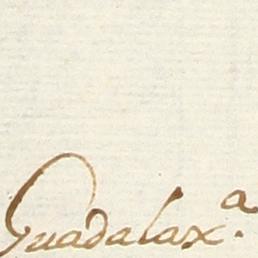 Guadalax.ª